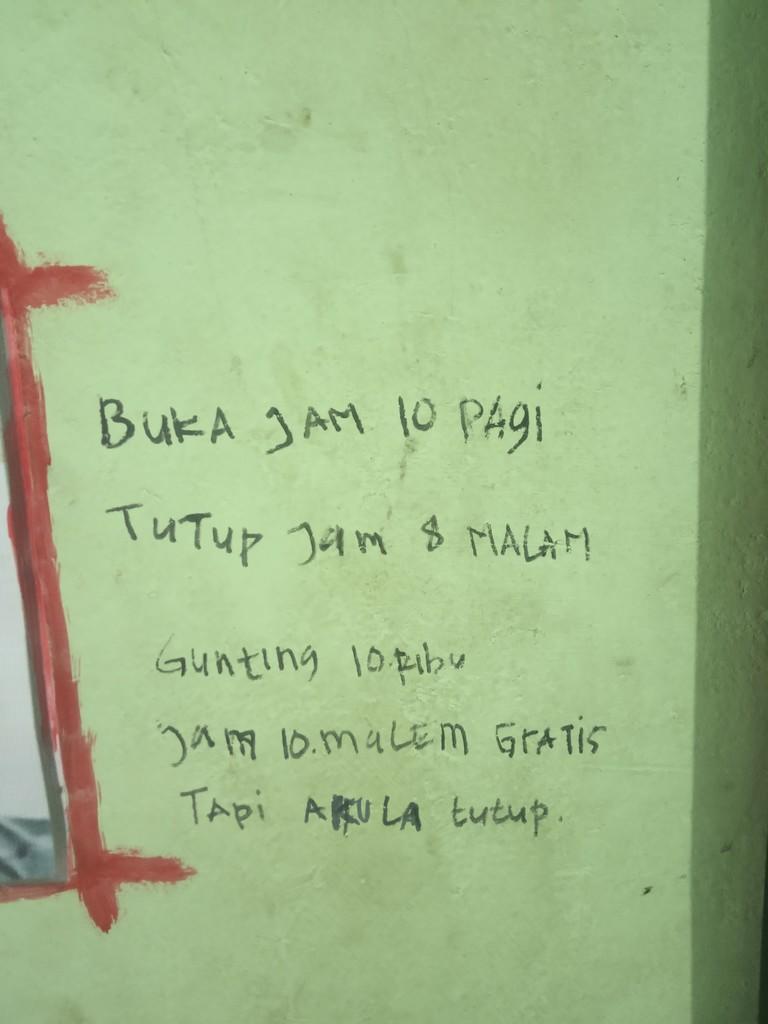 BUKA JAM 10 PAgi
TuTup Jam 8 MALAM
Gunting 10.Ribu
Jam 10.maLEM GrATis
TApi AKULA tutup.